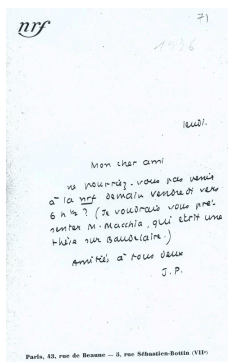 nrf
71
1936
Jeudi.
Mon cher ami
ne pourriez-vous pas venir
à la nrf demain vendredi vers
6 h ½ ? (Je voudrais vous pré-
senter M. Macchia, qui écrit une
thèse sur Baudelaire.)
Amitiés à tous deux
J.P.
Paris, 43, rue de Beaune — 5, rue Sébastien-Bottin (VIIᵉ)